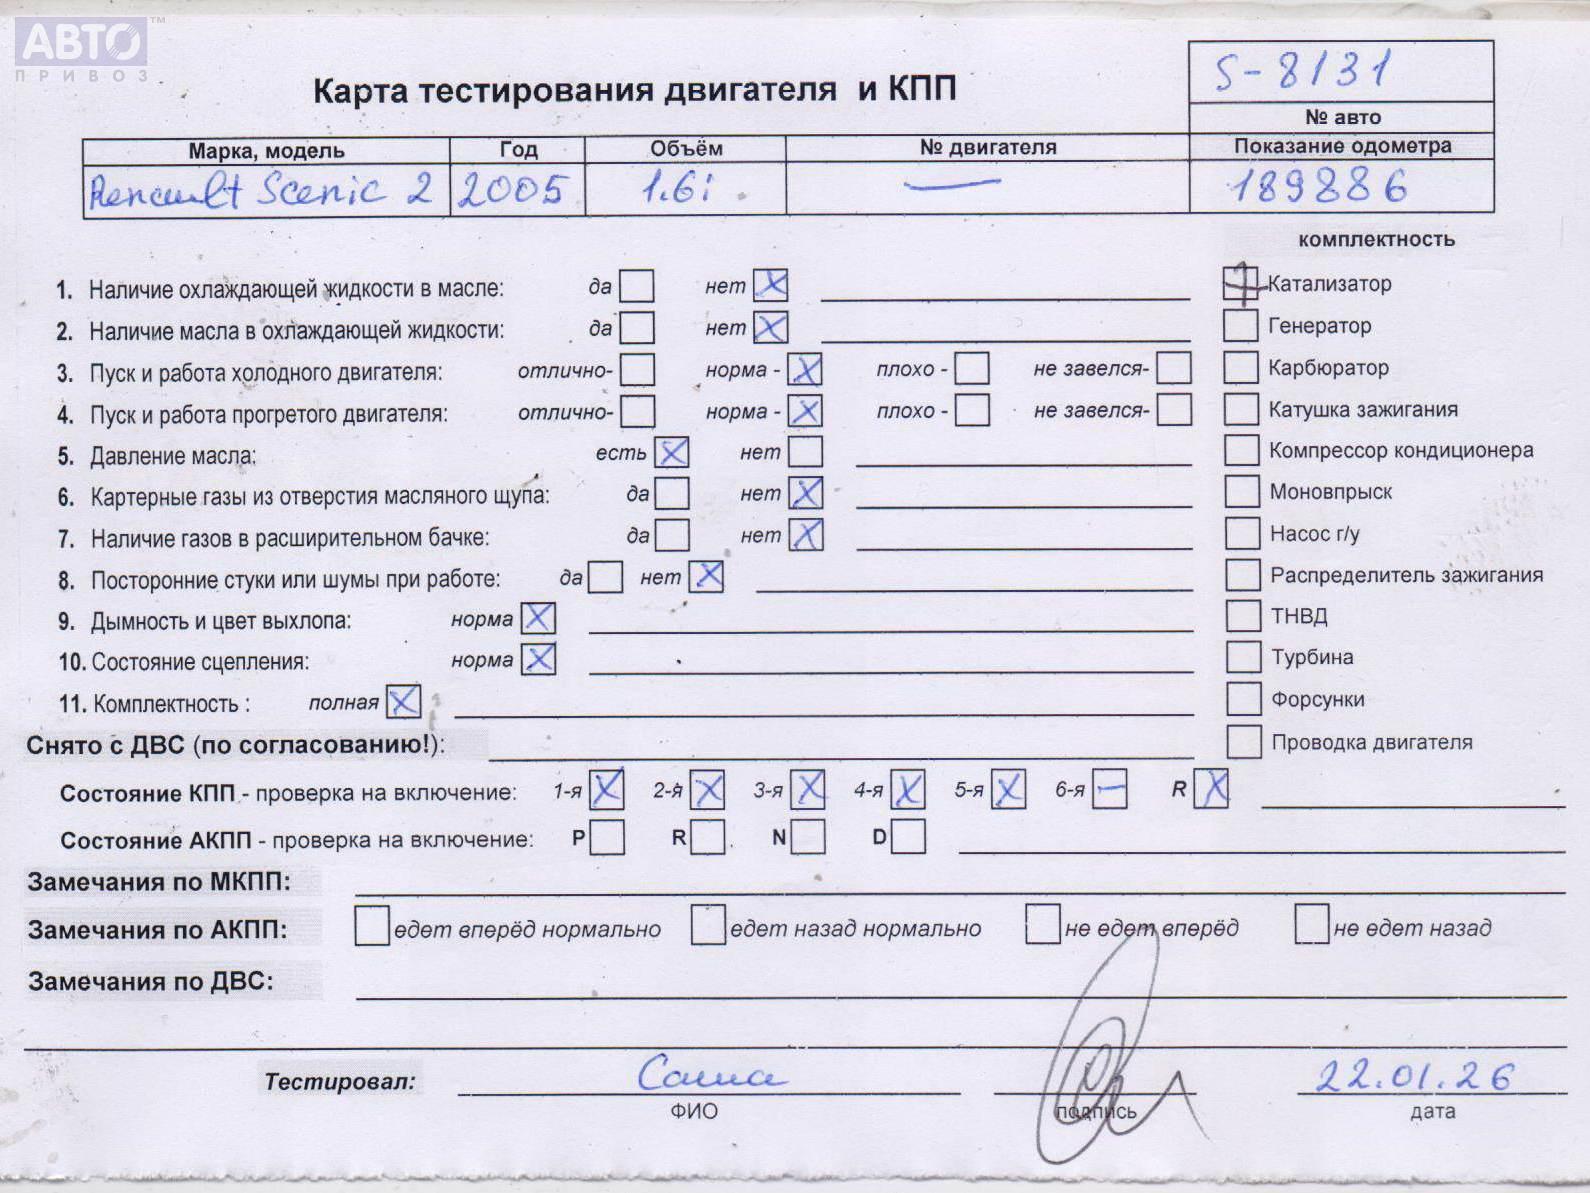 АВТО ™
ПРИВОЗ
S-8131
Карта тестирования двигателя и КПП
№ авто
Марка, модель Год Объём № двигателя Показание одометра
Renault Scenic 2 2005 1.6i — 189886
комплектность
1. Наличие охлаждающей жидкости в масле: да нет X
Катализатор
2. Наличие масла в охлаждающей жидкости: да нет X
Генератор
3. Пуск и работа холодного двигателя: отлично- норма - X плохо - не завелся-
Карбюратор
4. Пуск и работа прогретого двигателя: отлично- норма - X плохо - не завелся-
Катушка зажигания
5. Давление масла: есть X нет
Компрессор кондиционера
6. Картерные газы из отверстия масляного щупа: да нет X
Моновпрыск
7. Наличие газов в расширительном бачке: да нет X
Насос г/у
8. Посторонние стуки или шумы при работе: да нет X
Распределитель зажигания
9. Дымность и цвет выхлопа: норма X
ТНВД
10. Состояние сцепления: норма X
Турбина
11. Комплектность : полная X
Форсунки
Снято с ДВС (по согласованию!):
Проводка двигателя
Состояние КПП - проверка на включение: 1-я X 2-я X 3-я X 4-я X 5-я X 6-я — R X
Состояние АКПП - проверка на включение: P R N D
Замечания по МКПП:
Замечания по АКПП: едет вперёд нормально едет назад нормально не едет вперёд не едет назад
Замечания по ДВС:
Тестировал: Саша 22.01.26
ФИО подпись дата